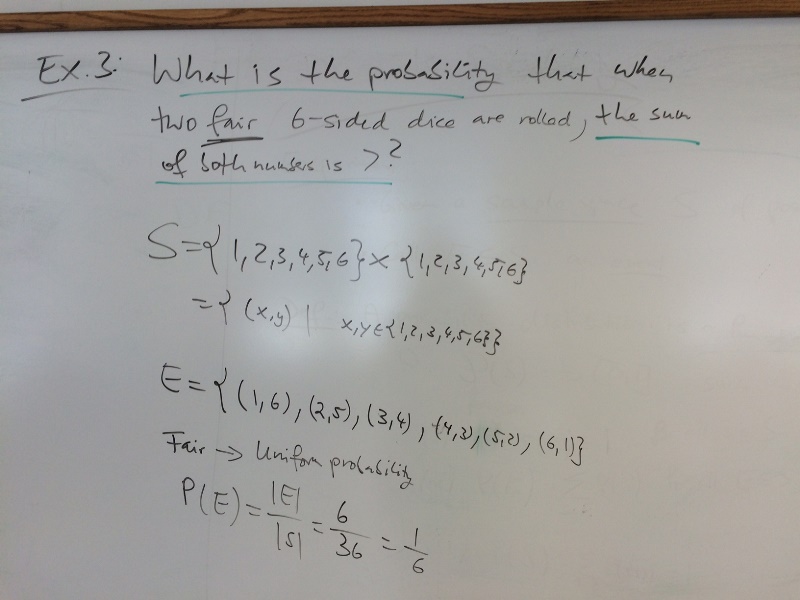 Ex. 3: What is the probability that when
two fair 6-sided dice are rolled, the sum
of both numbers is 7?
S={1,2,3,4,5,6}×{1,2,3,4,5,6}
={(x,y) | x,y∈{1,2,3,4,5,6}}
E={(1,6),(2,5),(3,4),(4,3),(5,2),(6,1)}
Fair → Uniform probability
P(E)=|E|/|S|=6/36=1/6